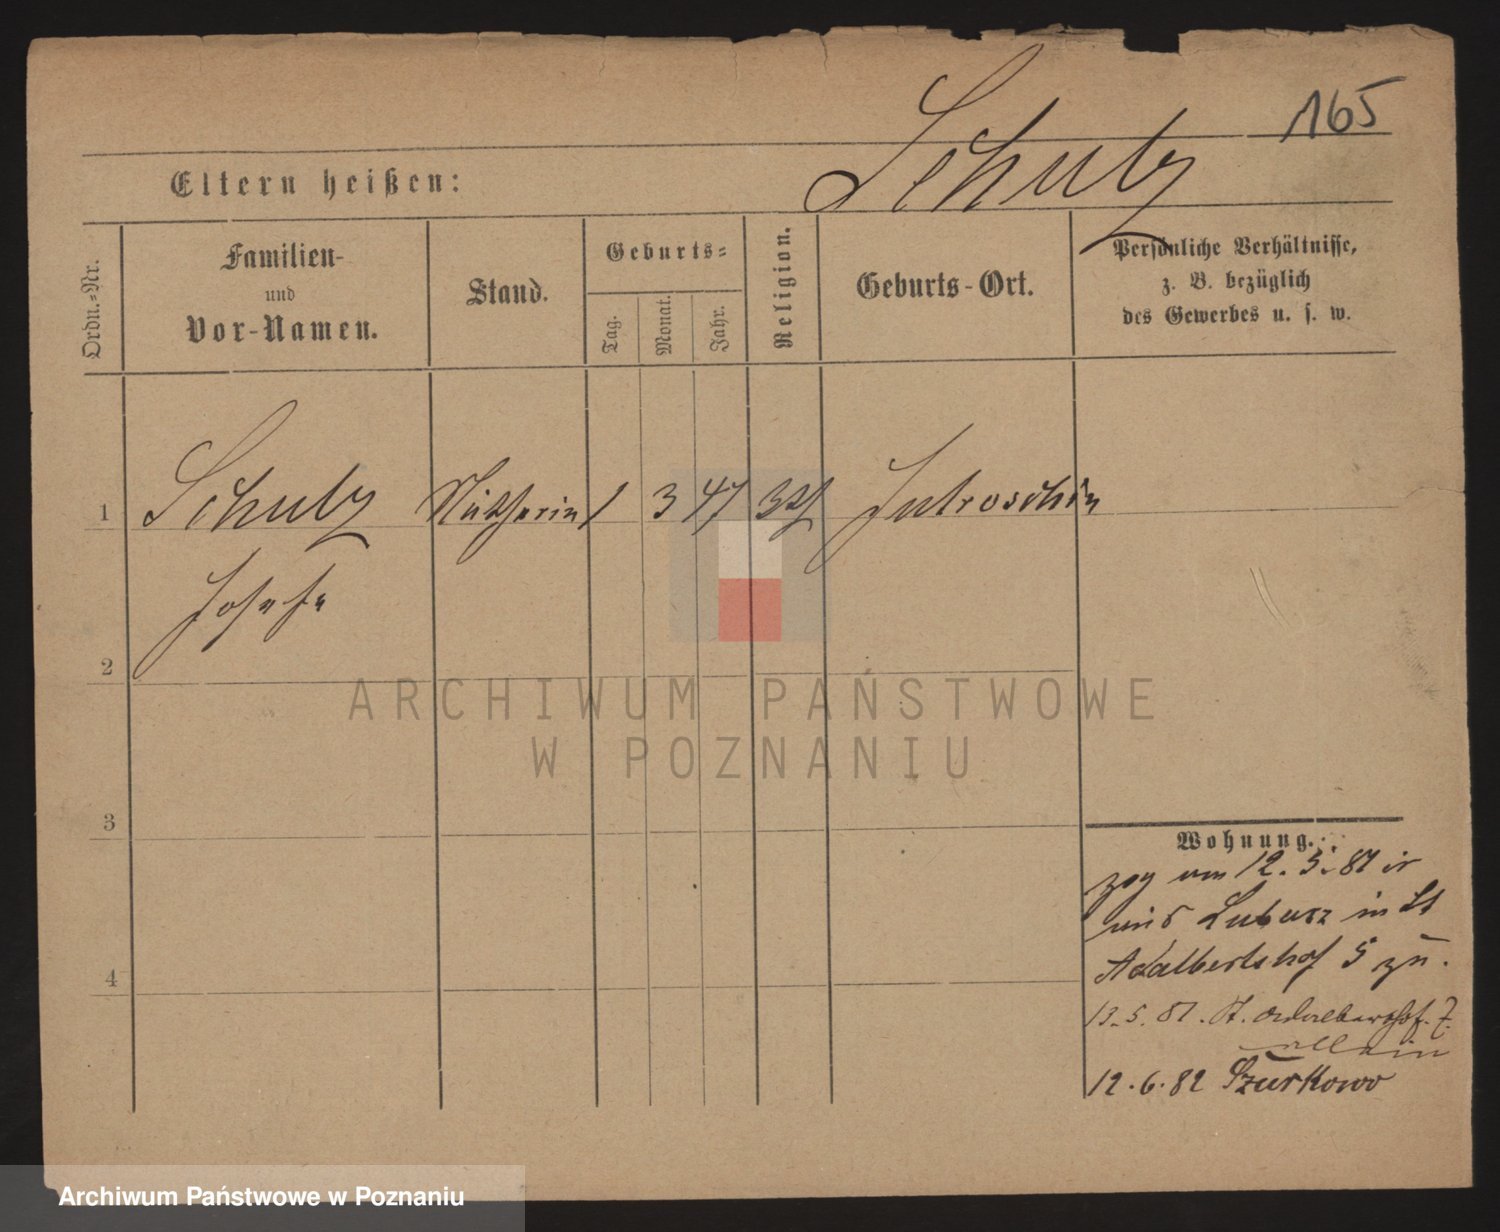 165
Schulz
Eltern heißen:
Ordn.-Nr.
Familien-
und
Vor-Namen.
Stand.
Geburts-
Tag.
Monat.
Jahr.
Religion.
Geburts-Ort.
Persönliche Verhältnisse,
z. B. bezüglich
des Gewerbes u. s. w.
1 Schulz Nätherin 1 3 47 Jutroschin
Josefa
2
3
4
Wohnung.
zog am 12.5.81
aus in St
Adalbertshof 5 zu.
13.5.81. St. Adalbertshof. 7.
allein
12.6.82 Szurkowo
ARCHIWUM PAŃSTWOWE
W POZNANIU
Archiwum Państwowe w Poznaniu